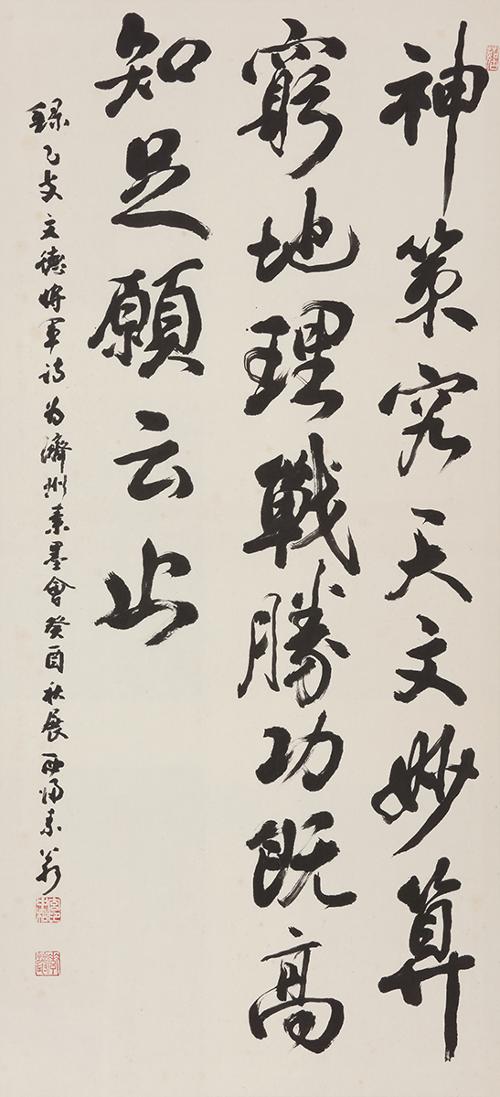 神策究天文妙算
窮地理戰勝功既高
知足願云止
錄乙支文德將軍詩為濟州素墨會癸酉秋展 西歸素翁